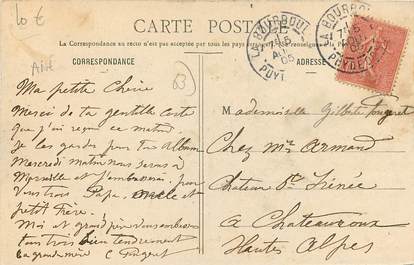 10 €
CARTE POSTALE
La Correspondance au recto n'est pas acceptée par tous les pays
CORRESPONDANCE
ADRESSE
LA BOURBOULE
PUY-DE-DÔME
63
Ma petite Chérie
Merci de ta gentille carte
que j'ai reçue ce matin.
Je les garde pour ton Album
Mercredi matin nous serons à
Marseille et j'embrasserai pour
vous trois Papa, oncle et
petit Frère.
Moi et grand'père vous embrassons
tous trois bien tendrement
ta grand'mère C
Mademoiselle Gilberte
Chez Mr Armand
Château St Irénée
à Chateauroux
Hautes Alpes